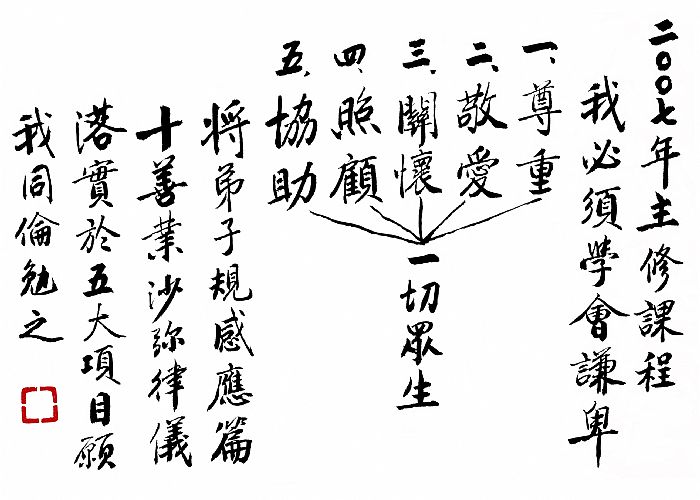 二〇〇七年主修課程
我必須學會謙卑
一、尊重
二、敬愛
三、關懷
四、照顧
五、協助
一切眾生
將弟子規感應篇
十善業沙彌律儀
落實於五大項目願
我同倫勉之